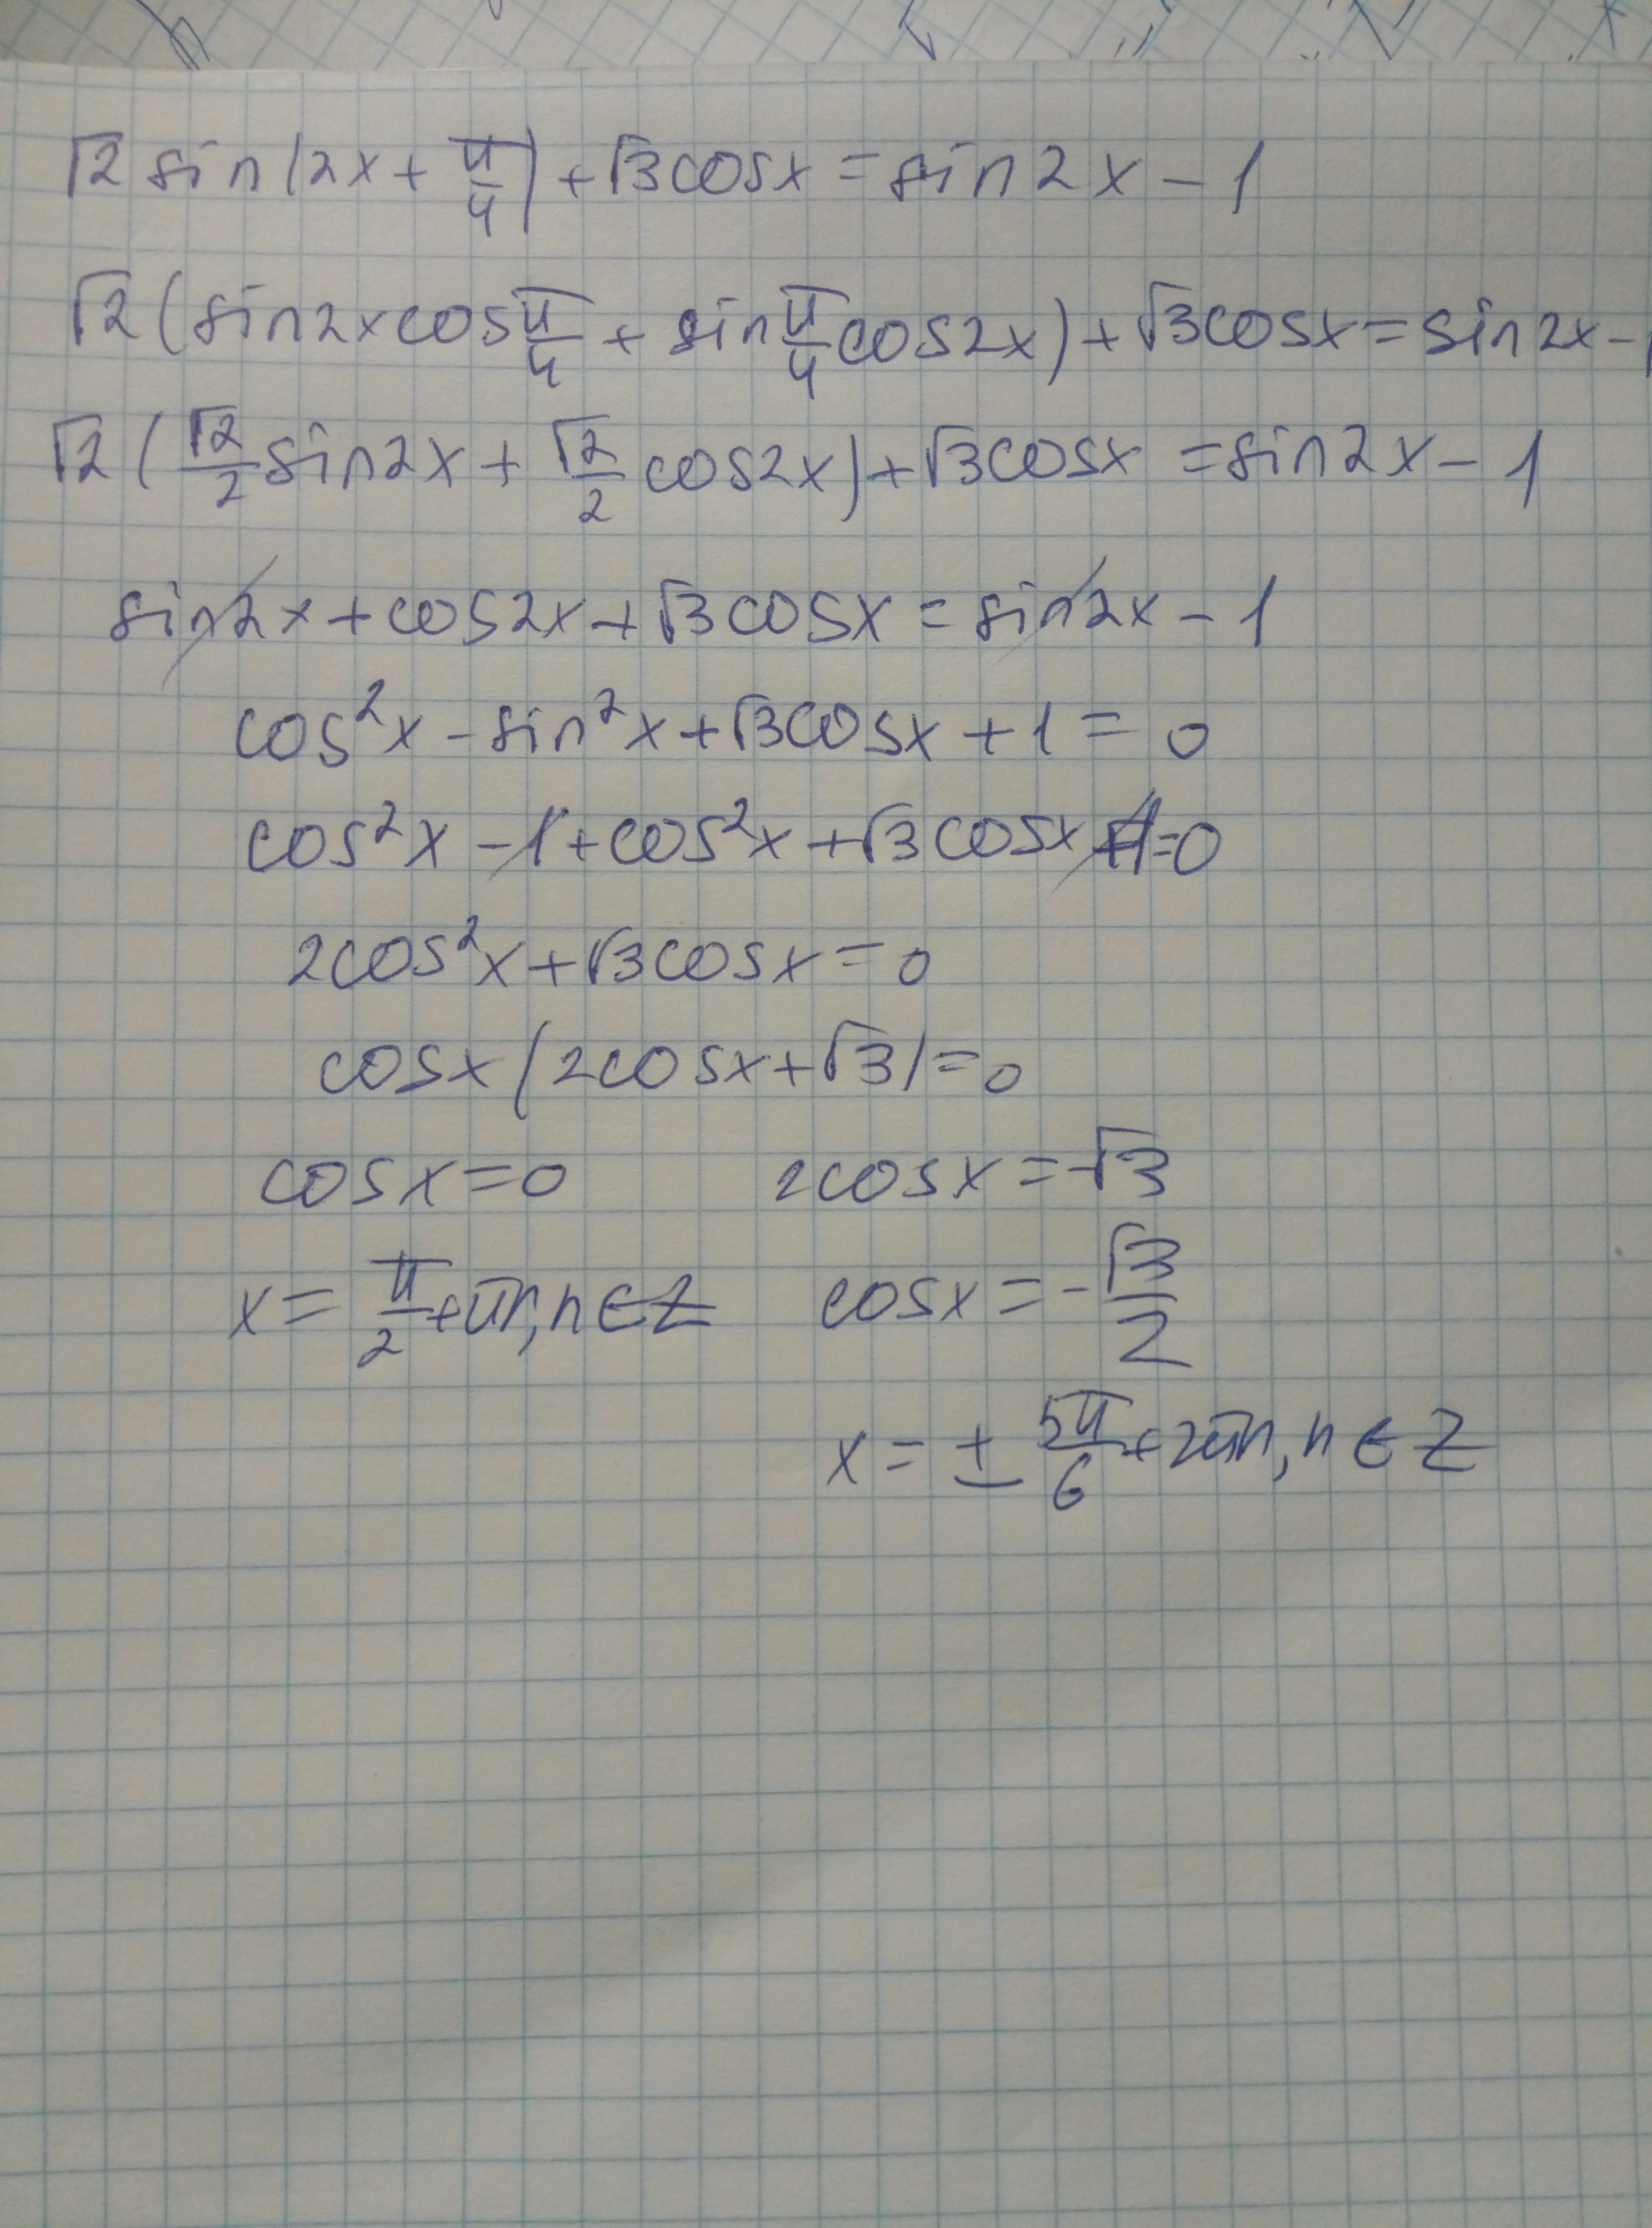 √2 sin(2x + π/4) + √3cosx = sin2x - 1
√2 (sin2xcos π/4 + sin π/4 cos2x) + √3cosx = sin2x - 1
√2 (√2/2 sin2x + √2/2 cos2x) + √3cosx = sin2x - 1
sin2x + cos2x + √3cosx = sin2x - 1
cos²x - sin²x + √3cosx + 1 = 0
cos²x - 1 + cos²x + √3cosx + 1 = 0
2cos²x + √3cosx = 0
cosx (2cosx + √3) = 0
cosx = 0 2cosx = -√3
x = π/2 + πn, n ∈ Z cosx = -√3/2
x = ± 5π/6 + 2πn, n ∈ Z